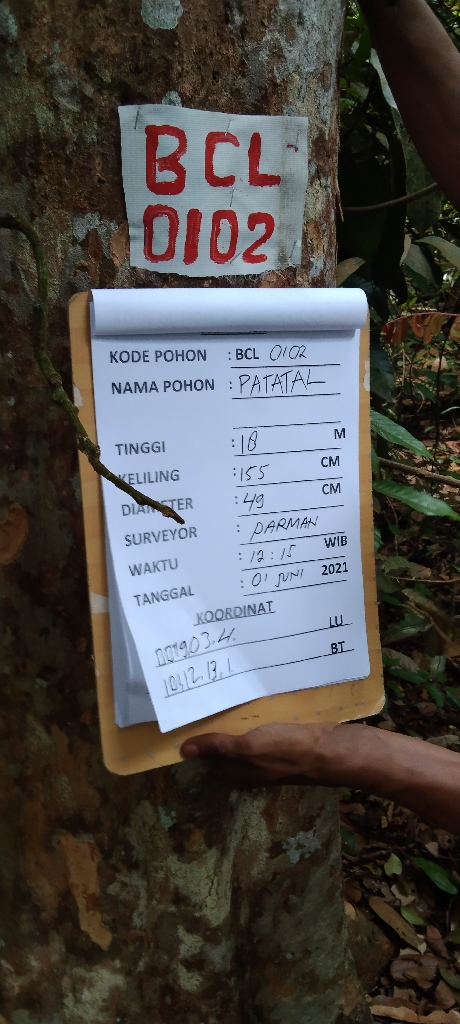 BCL
0102
KODE POHON : BCL 0102
NAMA POHON : PATATAL
TINGGI : 18 M
KELILING : 155 CM
DIAMETER : 49 CM
SURVEYOR : PARMAN
WAKTU : 12 : 15 WIB
TANGGAL : 01 JUNI 2021
KOORDINAT
LU
BT